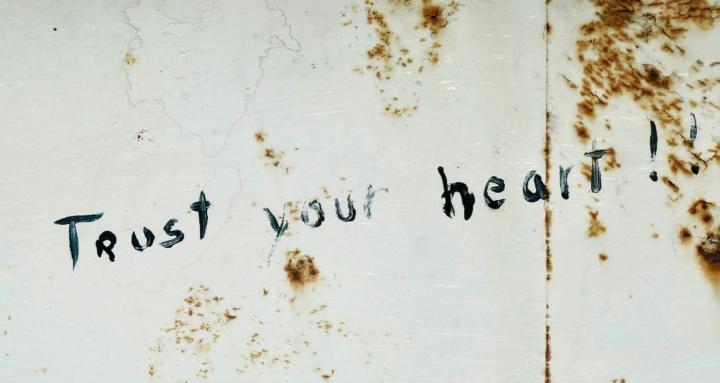 Trust your heart!!